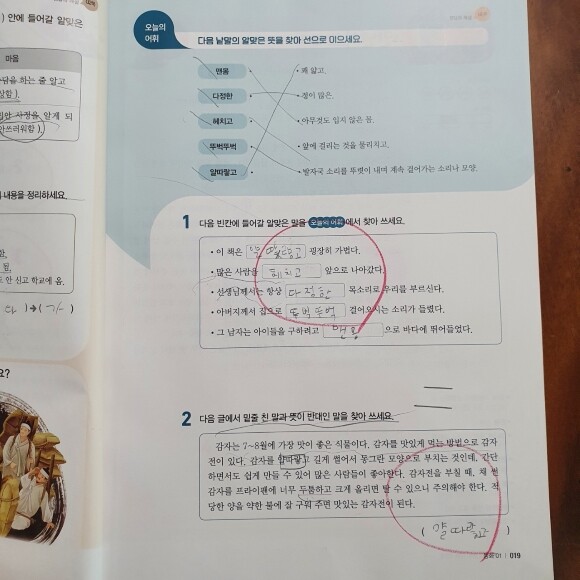 ) 안에 들어갈 알맞은
마음
담을 하는 줄 알고
상함 ).
사정을 알게 되
안쓰러워함 ).
내용을 정리하세요.
함.
됨.
도 안 신고 학교에 옴.
오늘의
어휘
다음 낱말의 알맞은 뜻을 찾아 선으로 이으세요.
맨몸 꽤 얇고.
다정한 정이 많은.
헤치고 아무것도 입지 않은 몸.
뚜벅뚜벅 앞에 걸리는 것을 물리치고.
얄따랗고 발자국 소리를 뚜렷이 내며 계속 걸어가는 소리나 모양.
1 다음 빈칸에 들어갈 알맞은 말을 오늘의 어휘 에서 찾아 쓰세요.
• 이 책은 굉장히 가볍다.
• 많은 사람을 헤치고 앞으로 나아갔다.
• 선생님께서는 항상 다정한 목소리로 우리를 부르신다.
• 아버지께서 집으로 뚜벅뚜벅 걸어오시는 소리가 들렸다.
• 그 남자는 아이들을 구하려고 맨몸 으로 바다에 뛰어들었다.
2 다음 글에서 밑줄 친 말과 뜻이 반대인 말을 찾아 쓰세요.
감자는 7~8월에 가장 맛이 좋은 식물이다. 감자를 맛있게 먹는 방법으로 감자
전이 있다. 감자를 얄따랗고 길게 썰어서 동그란 모양으로 부치는 것인데, 간단
하면서도 쉽게 만들 수 있어 많은 사람들이 좋아한다. 감자전을 부칠 때, 채 썬
감자를 프라이팬에 너무 두툼하고 크게 올리면 탈 수 있으니 주의해야 한다. 적
당한 양을 약한 불에 잘 구워 주면 맛있는 감자전이 된다.
( 얄따랗고 )
요?
019